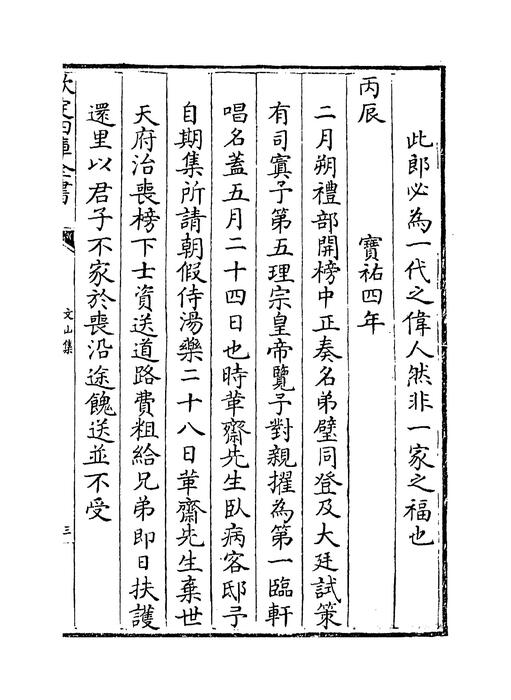 此郎必為一代之偉人然非一家之福也
丙辰　寶祐四年
二月朔禮部開榜中正奏名弟璧同登及大廷試策
有司寘子第五理宗皇帝覽子對親擢為第一臨軒
唱名蓋五月二十四日也時革齋先生臥病客邸子
自期集所請朝假侍湯藥二十八日革齋先生棄世
天府治喪榜下士資送道路費粗給兄弟即日扶護
還里以君子不家於喪沿途餽送並不受
欽定四庫全書
文山集
三